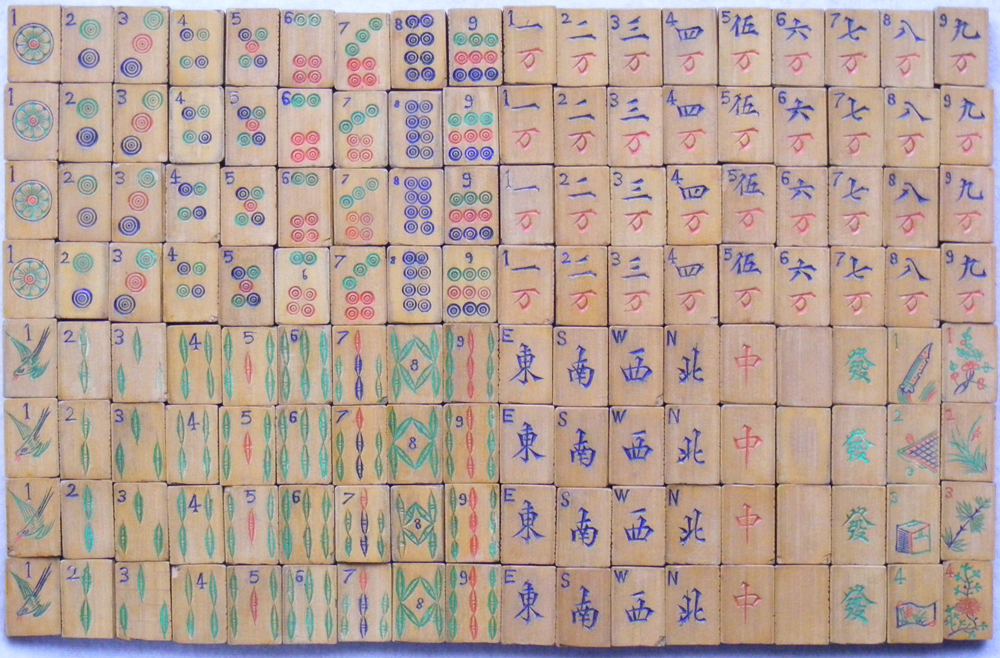 1 2 3 4 5 6 7 8 9 1 一 2 二 3 三 4 四 5 伍 6 六 7 七 8 八 9 九
万 万 万 万 万 万 万 万 万
1 2 3 4 5 6 7 8 9 1 一 2 二 3 三 4 四 5 伍 6 六 7 七 8 八 9 九
万 万 万 万 万 万 万 万 万
1 2 3 4 5 6 7 8 9 1 一 2 二 3 三 4 四 5 伍 6 六 7 七 8 八 9 九
万 万 万 万 万 万 万 万 万
1 2 3 4 5 6 7 8 9 1 一 2 二 3 三 4 四 5 伍 6 六 7 七 8 八 9 九
万 万 万 万 万 万 万 万 万
1 2 3 4 5 6 7 8 9 E 東 S 南 W 西 N 北 中 發 1 1
1 2 3 4 5 6 7 8 9 E 東 S 南 W 西 N 北 中 發 2 2
1 2 3 4 5 6 7 8 9 E 東 S 南 W 西 N 北 中 發 3 3
1 2 3 4 5 6 7 8 9 E 東 S 南 W 西 N 北 中 發 4 4